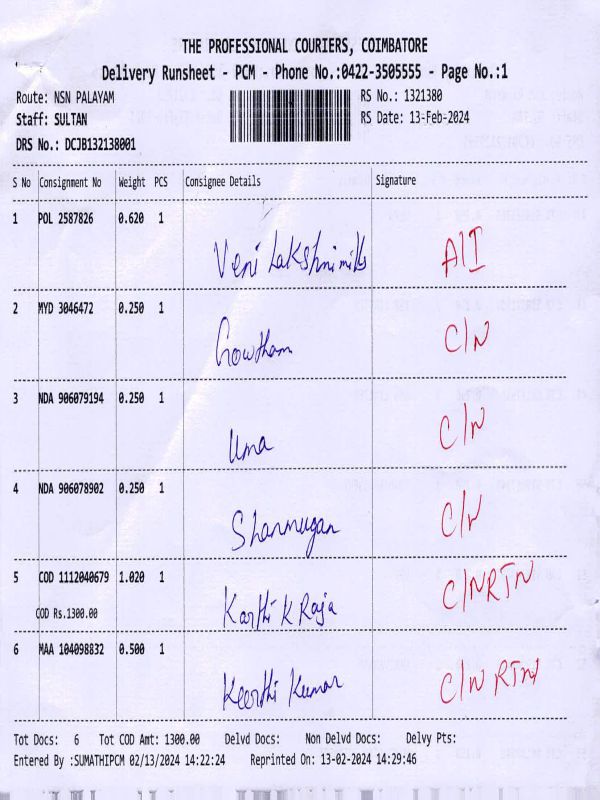 THE PROFESSIONAL COURIERS, COIMBATORE
Delivery Runsheet - PCM - Phone No.:0422-3505555 - Page No.:1
Route: NSN PALAYAM RS No.: 1321380
Staff: SULTAN RS Date: 13-Feb-2024
DRS No.: DCJB132138001
S No Consignment No Weight PCS Consignee Details Signature
1 POL 2587826 0.620 1
Veni Lakshmi mills AIT
2 MYD 3046472 0.250 1
Gowtham C/N
3 NDA 906079194 0.250 1
Uma C/N
4 NDA 906078902 0.250 1
Shanmugan C/N
5 COD 1112040679 1.020 1
COD Rs.1300.00 Karthi K Raja C/N RTN
6 MAA 104098832 0.500 1
Keerthi Kumar C/N RTN
Tot Docs: 6 Tot COD Amt: 1300.00 Delvd Docs: Non Delvd Docs: Delvy Pts:
Entered By :SUMATHIPCM 02/13/2024 14:22:24 Reprinted On: 13-02-2024 14:29:46